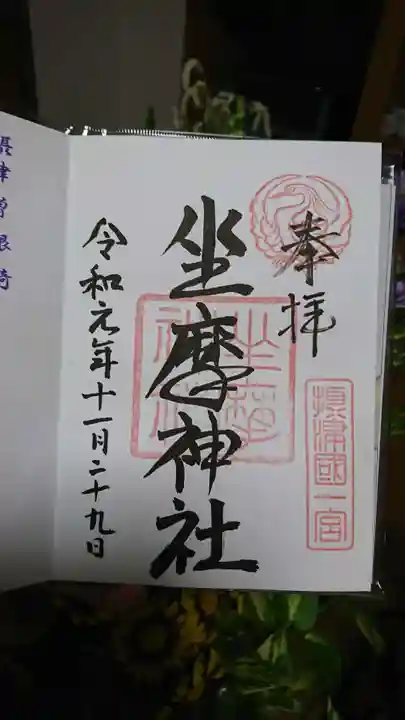 奉拝
摂津國一宮
坐摩神社
令和元年十一月二十九日
摂津曽根崎